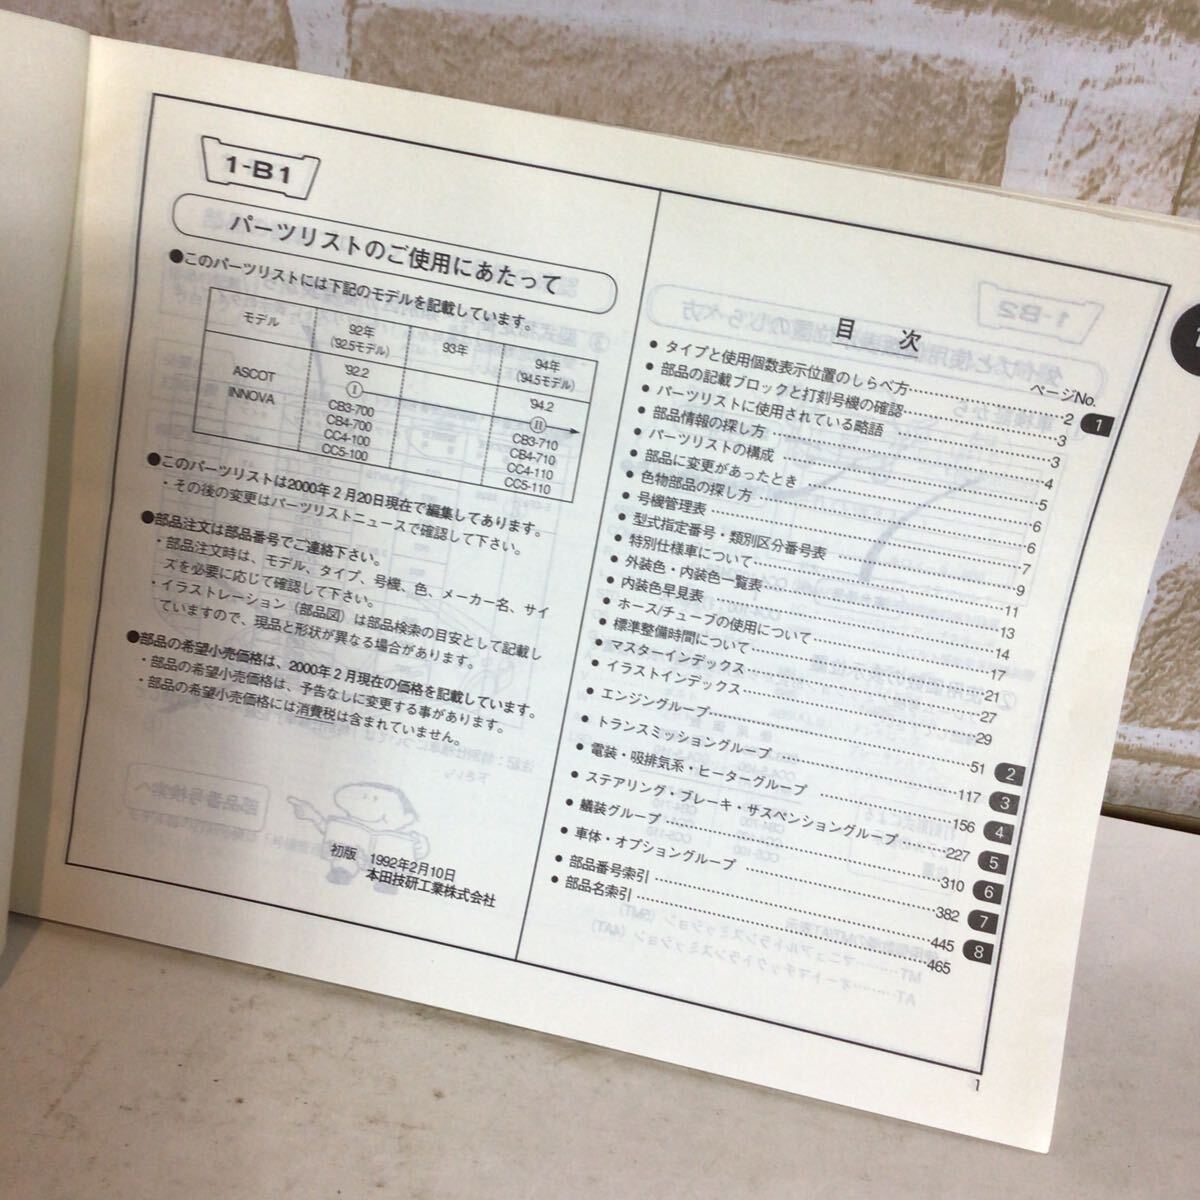 1-B1
パーツリストのご使用にあたって
●このパーツリストには下記のモデルを記載しています。
モデル 92年 ('92.5モデル) 93年 94年 ('94.5モデル)
ASCOT INNOVA
'92.2 Ⓘ
CB3-700
CB4-700
CC4-100
CC5-100
'94.2
CB3-710
CB4-710
CC4-110
CC5-110
●このパーツリストは2000年2月20日現在で編集してあります。
・その後の変更はパーツリストニュースで確認して下さい。
●部品注文は部品番号でご連絡下さい。
・部品注文時は、モデル、タイプ、号機、色、メーカー名、サイ
ズを必要に応じて確認して下さい。
・イラストレーション（部品図）は部品検索の目安として記載し
ていますので、現品と形状が異なる場合があります。
●部品の希望小売価格は、2000年2月現在の価格を記載しています。
・部品の希望小売価格は、予告なしに変更する事があります。
・部品の希望小売価格には消費税は含まれていません。
初版 1992年2月10日
本田技研工業株式会社
目 次
ページNo.
● タイプと使用個数表示位置のしらべ方 2 1
● 部品の記載ブロックと打刻号機の確認 3
● パーツリストに使用されている略語 3
● 部品情報の探し方 4
● パーツリストの構成 5
● 部品に変更があったとき 6
● 色物部品の探し方 6
● 号機管理表 7
● 型式指定番号・類別区分番号表 9
● 特別仕様車について 11
● 外装色・内装色一覧表 13
● 内装色早見表 14
● ホース/チューブの使用について 17
● 標準整備時間について 17
● マスターインデックス 21
● イラストインデックス 27
● エンジングループ 29
● トランスミッショングループ 51 2
● 電装・吸排気系・ヒーターグループ 117 3
● ステアリング・ブレーキ・サスペンショングループ 156 4
● 艤装グループ 227 5
● 車体・オプショングループ 310 6
● 部品番号索引 382 7
● 部品名索引 445 8
465
1